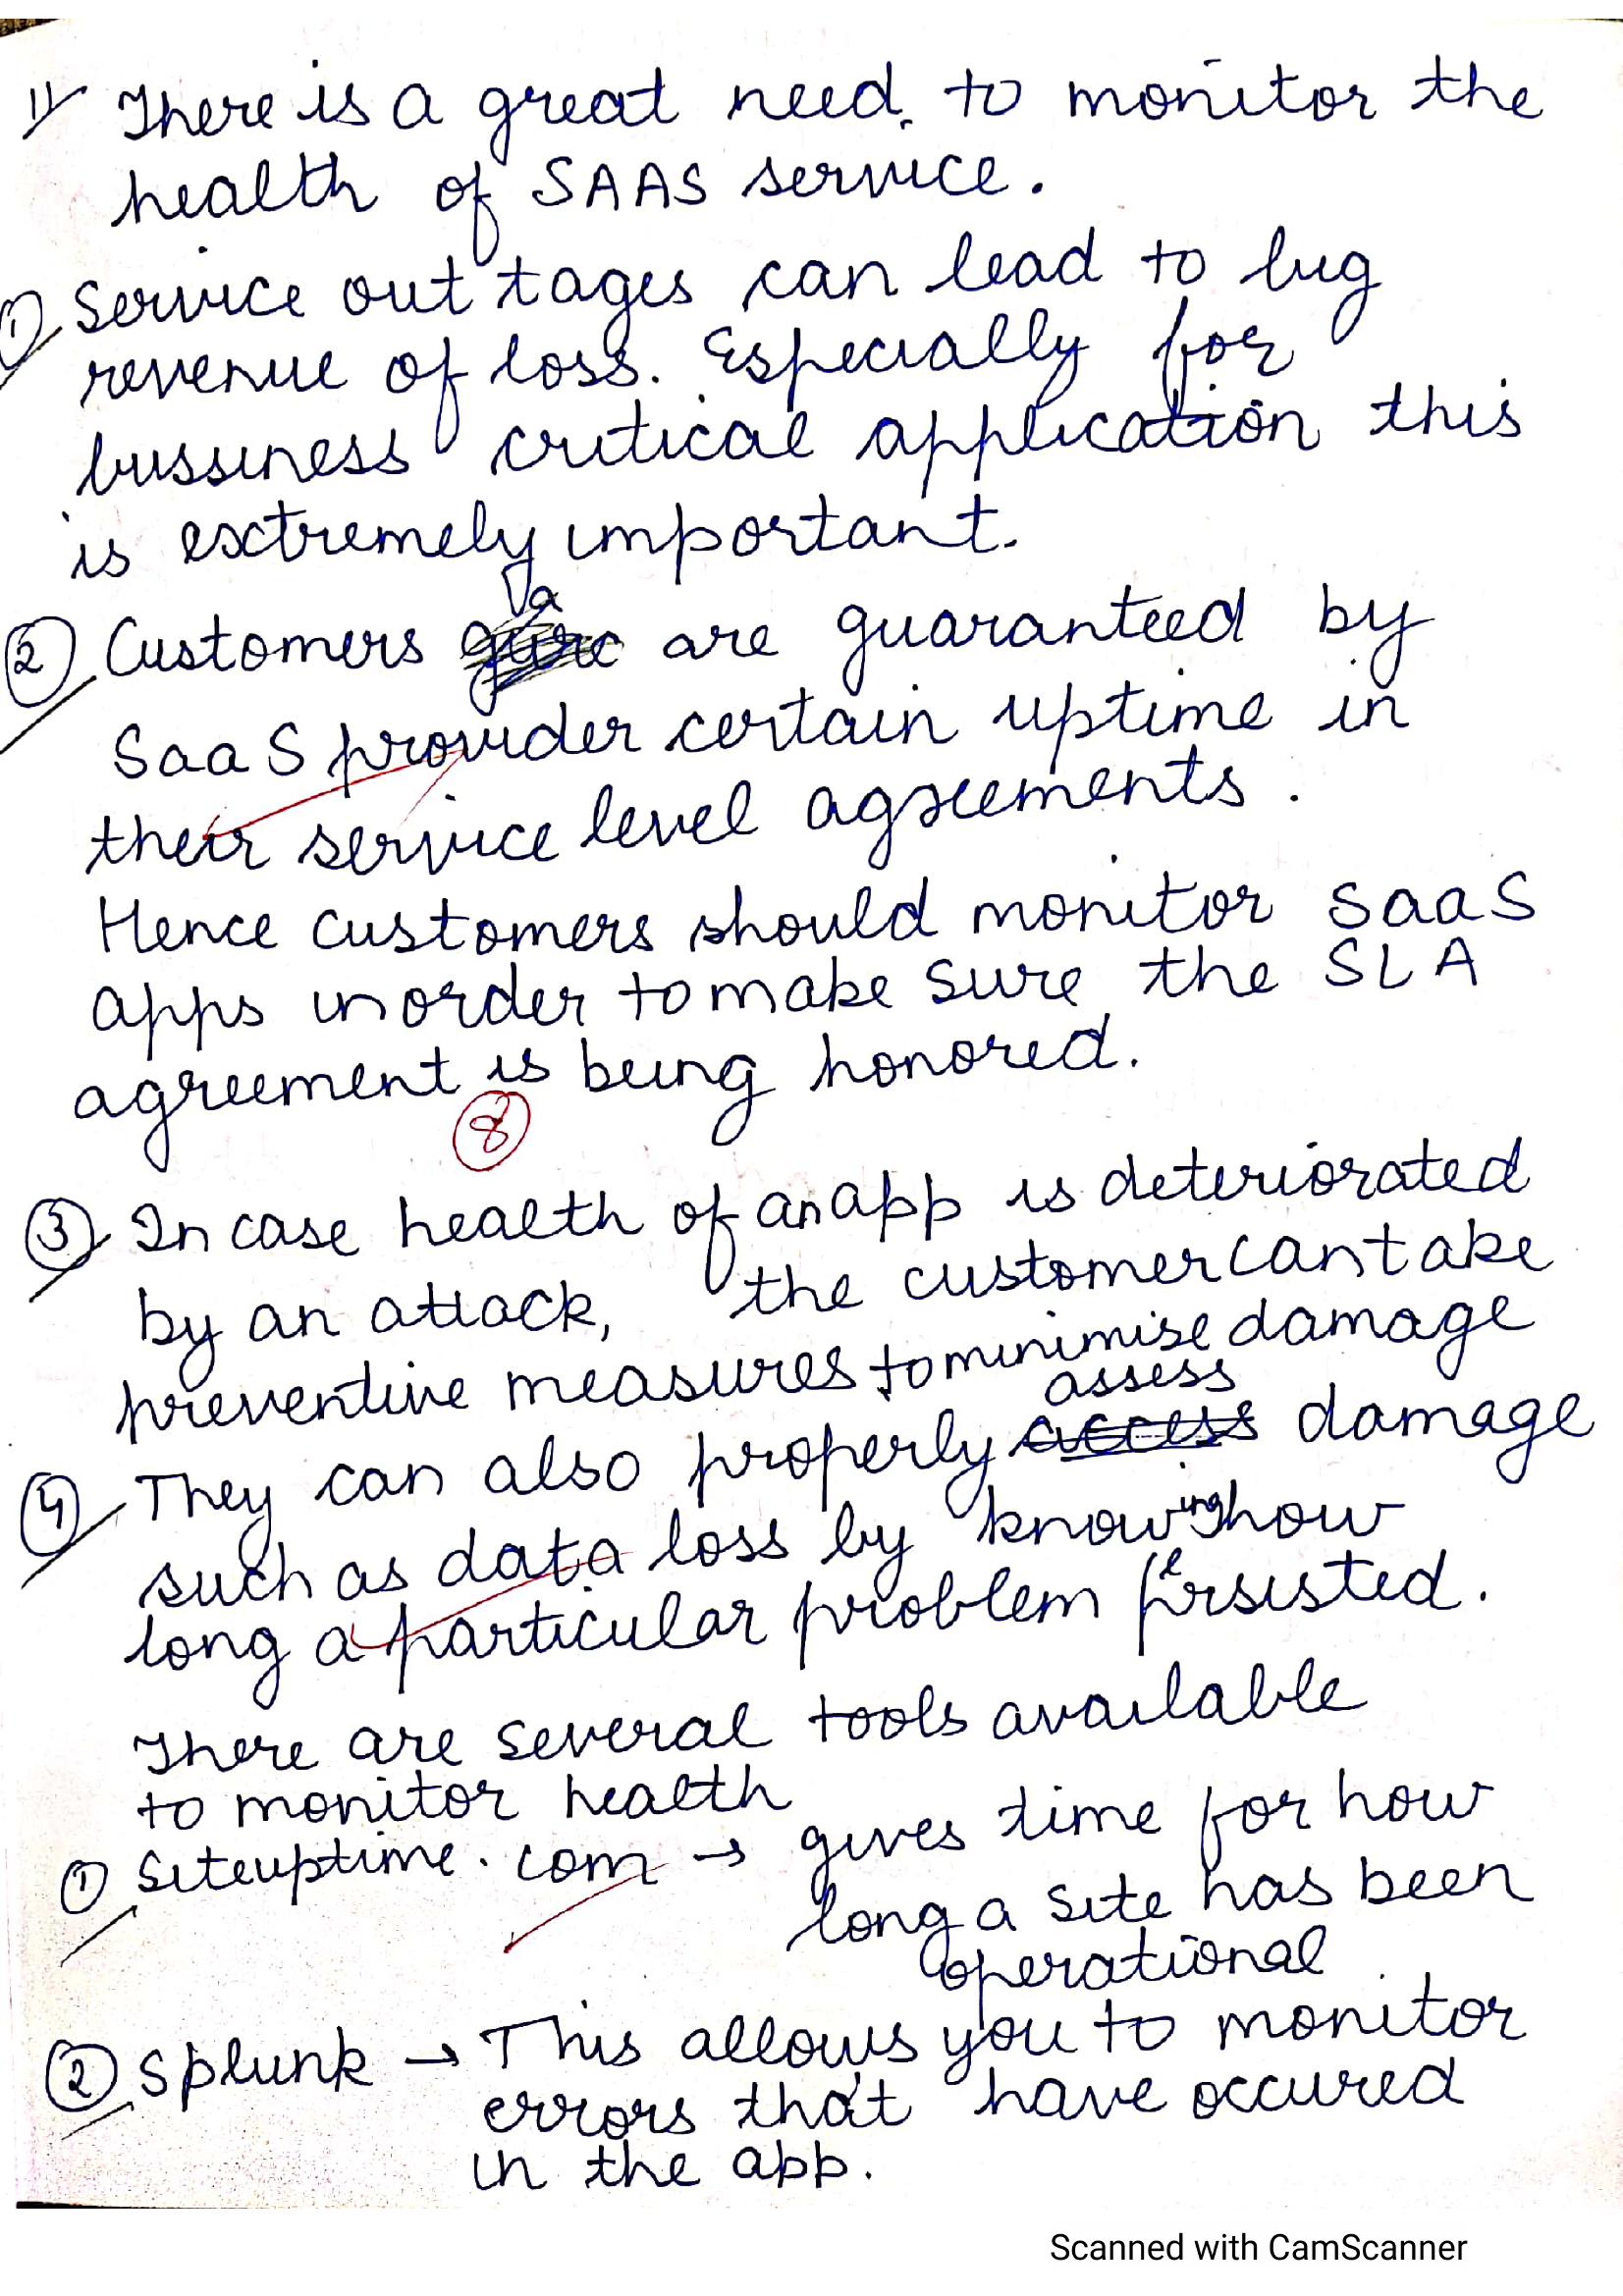 1) There is a great need to monitor the
health of SAAS service.
1) Service out tages can lead to big
revenue of loss. Especially for
bussiness critical application this
is extremely important.
2) Customers are guaranteed by
SaaS provider certain uptime in
their service level agreements.
Hence customers should monitor SaaS
apps inorder to make sure the SLA
agreement is being honored.
8
3) In case health of an app is deteriorated
by an attack, the customer can take
preventive measures to minimise damage
4) They can also properly assess damage
such as data loss by knowing how
long a particular problem persisted.
There are several tools available
to monitor health
1) Siteuptime.com → gives time for how
long a site has been
operational
2) Splunk → This allows you to monitor
errors that have occured
in the app.
Scanned with CamScanner